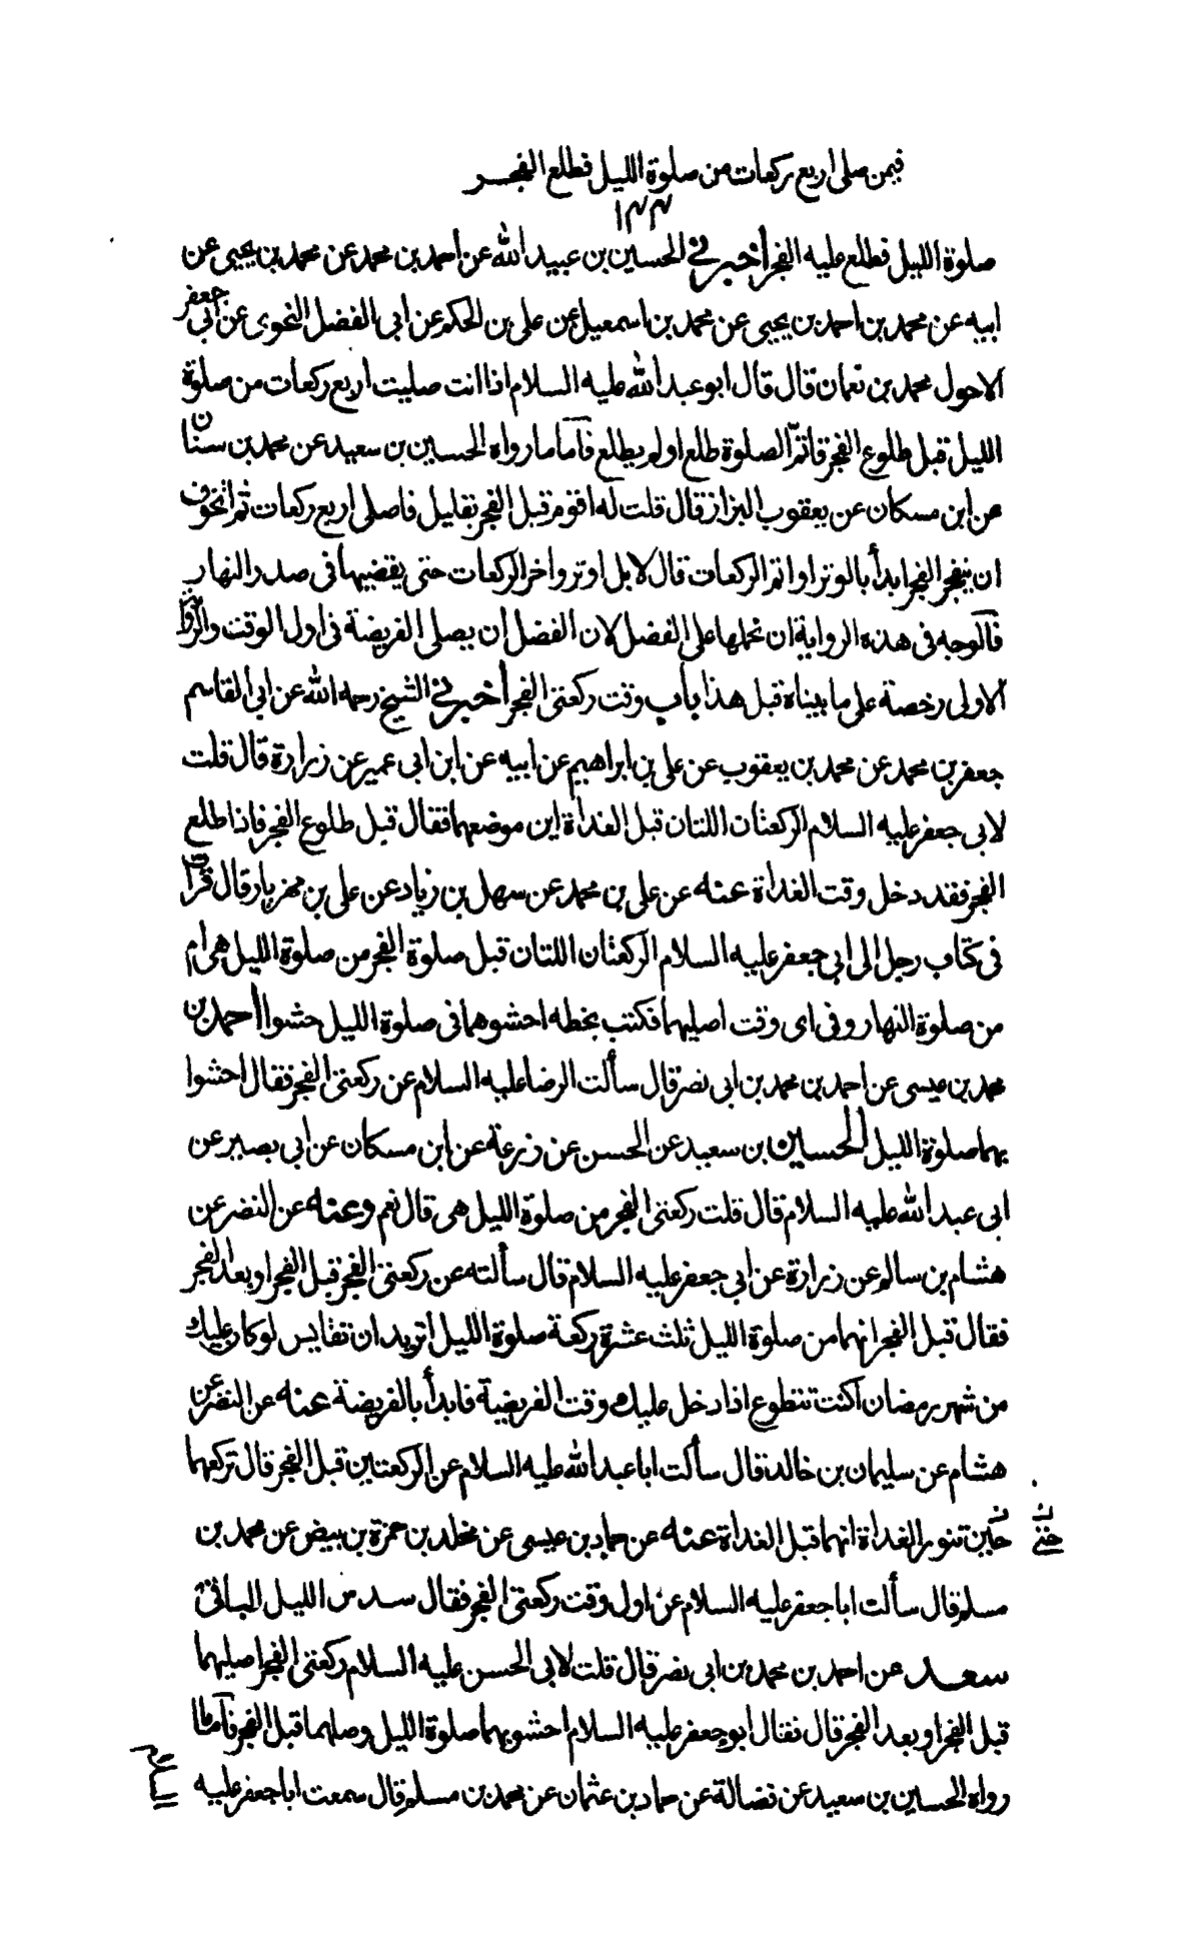 فيمن صلى اربع ركعات من صلوة الليل فطلع الفجر
١٣٣
صلوة الليل فطلع عليه الفجر أخبرني الحسين بن عبيد الله عن احمد بن محمد عن محمد بن يحيى عن
ابيه عن محمد بن احمد بن يحيى عن محمد بن اسمعيل عن على بن الحكم عن ابى الفضل النحوى عن ابى جعفر
الاحول محمد بن نعمان قال قال ابو عبد الله عليه السلام اذا انت صليت اربع ركعات من صلوة
الليل قبل طلوع الفجر فاتمّ الصلوة طلع او لم يطلع فآما ما رواه الحسين بن سعيد عن محمد بن سنان
عن ابن مسكان عن يعقوب البزاز قال قلت له اقوم قبل الفجر بقليل فاصلى اربع ركعات ثم اتخوف
ان ينفجر الفجر ابدأ بالوتر او اتم الركعات قال لا بل اوتر واخر الركعات حتى يقضيها فى صدر النهار
فآلوجه فى هذه الرواية ان نحملها على الفضل لان الفضل ان يصلى الفريضة فى اول الوقت والرواية
الاولى رخصة على ما بيناه قبل هذا باب وقت ركعتى الفجر أخبرني الشيخ رحمه الله عن ابى القاسم
جعفر بن محمد عن محمد بن يعقوب عن على بن ابراهيم عن ابيه عن ابن ابى عمير عن زرارة قال قلت
لابى جعفر عليه السلام الركعتان اللتان قبل الغداة اين موضعهما فقال قبل طلوع الفجر فاذا طلع
الفجر فقد دخل وقت الغداة عنه عن على بن محمد عن سهل بن زياد عن على بن مهزيار قال قرأت
فى كتاب رجل الى ابى جعفر عليه السلام الركعتان اللتان قبل صلوة الفجر من صلوة الليل هى ام
من صلوة النهار وفى اى وقت اصليهما فكتب بخطه احشوهما فى صلوة الليل حشوا احمد بن
محمد بن عيسى عن احمد بن محمد بن ابى نصر قال سألت الرضا عليه السلام عن ركعتى الفجر فقال احشوا
بهما صلوة الليل الحسين بن سعيد عن الحسن عن زرعة عن ابن مسكان عن ابى بصير عن
ابى عبد الله عليه السلام قال قلت ركعتى الفجر من صلوة الليل هى قال نعم وعنه عن النضر عن
هشام بن سالم عن زرارة عن ابى جعفر عليه السلام قال سألته عن ركعتى الفجر قبل الفجر او بعد الفجر
فقال قبل الفجر انهما من صلوة الليل ثلث عشرة ركعة صلوة الليل أتريد ان تقايس لو كان عليك
من شهر رمضان آكنت تتطوع اذا دخل عليك وقت الفريضة فابدأ بالفريضة عنه عن النضر عن
هشام عن سليمان بن خالد قال سألت ابا عبد الله عليه السلام عن الركعتين قبل الفجر قال تركعهما
حين تنور الغداة انهما قبل الغداة عنه عن حماد بن عيسى عن مخلد بن حمزة بن بيض عن محمد بن
مسلم قال سألت ابا جعفر عليه السلام عن اول وقت ركعتى الفجر فقال سدس الليل الباقى
سعد عن احمد بن محمد بن ابى نصر قال قلت لابى الحسن عليه السلام ركعتى الفجر اصليهما
قبل الفجر او بعد الفجر قال فقال ابو جعفر عليه السلام احشو بهما صلوة الليل وصلهما قبل الفجر فآما ما
رواه الحسين بن سعيد عن فضالة عن حماد بن عثمان عن محمد بن مسلم قال سمعت ابا جعفر عليه
السلام